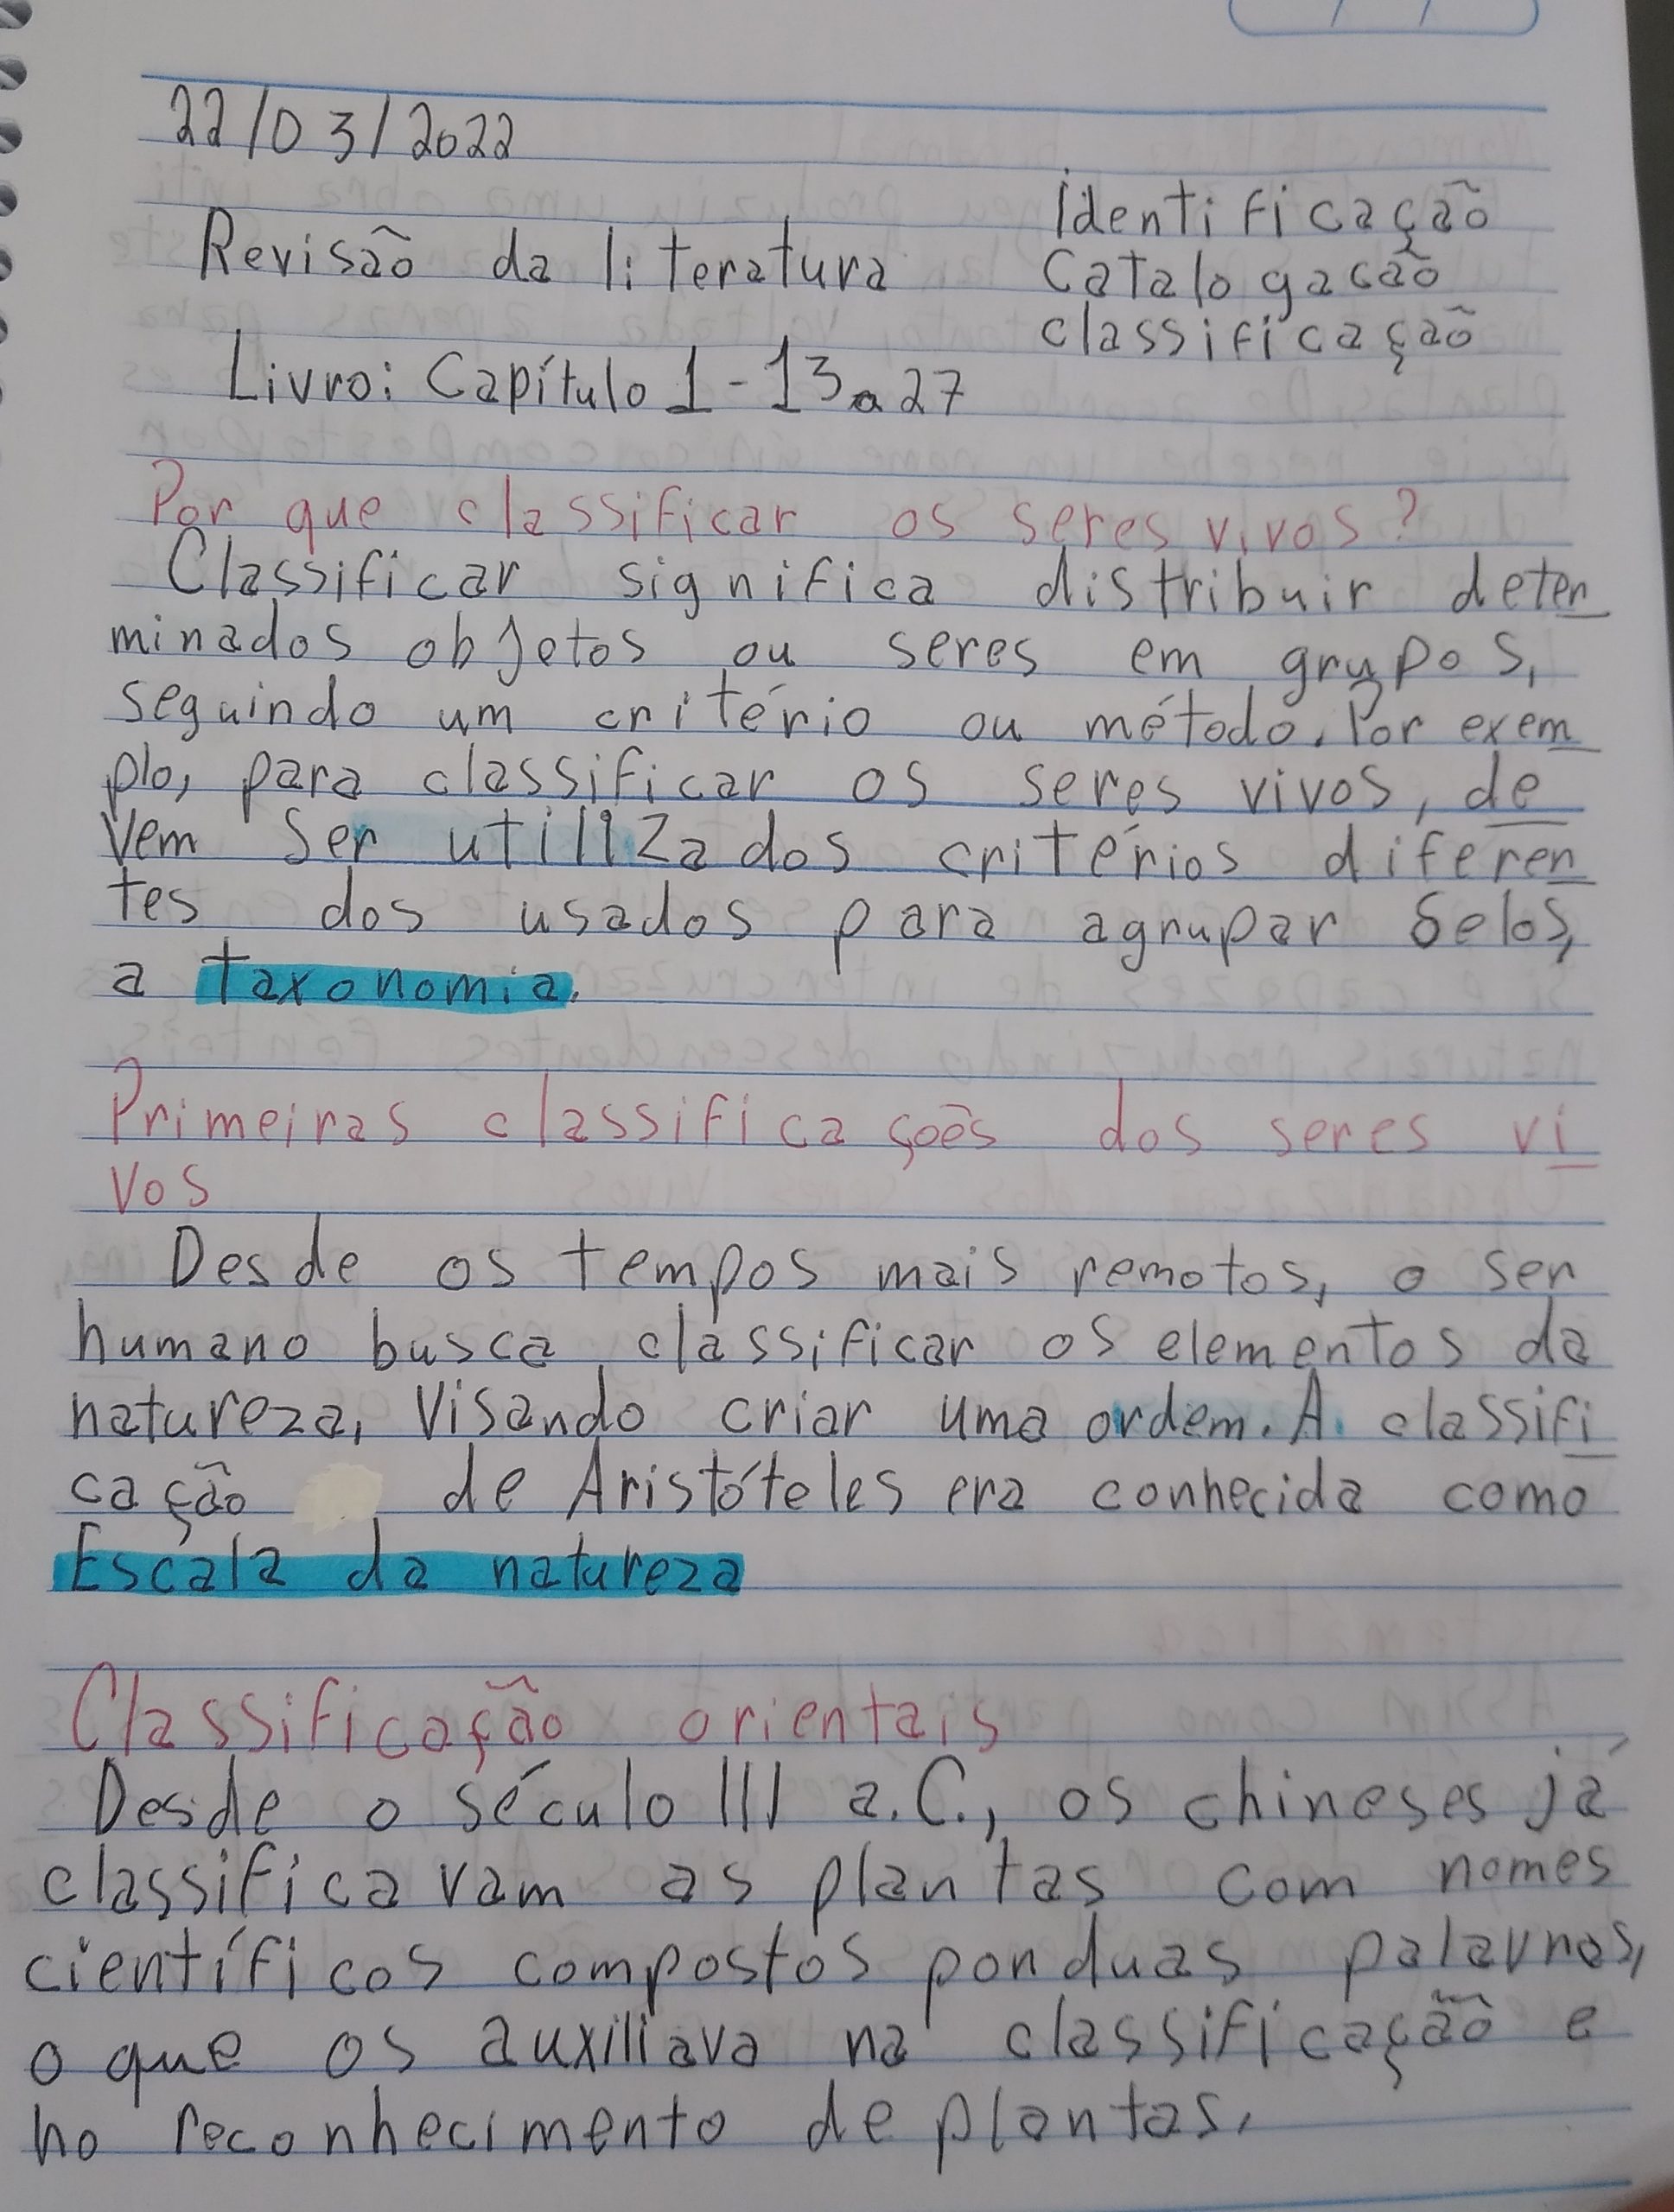 22/03/2022
Identificação
Revisão da literatura
Catalogacão
classificação
Livro: Capítulo 1 - 13 a 27
Por que classificar os seres vivos?
Classificar significa distribuir deter
minados objetos ou seres em grupos,
seguindo um critério ou método. Por exem
plo, para classificar os seres vivos, de
vem ser utilizados critérios diferen
tes dos usados para agrupar selos,
a taxonomia.
Primeiras classificações dos seres vi
vos
Desde os tempos mais remotos, o ser
humano busca classificar os elementos da
natureza, visando criar uma ordem. A classifi
cação de Aristóteles era conhecida como
Escala da natureza
Classificação orientais
Desde o século III a.C., os chineses já
classificavam as plantas com nomes
científicos compostos por duas palavras,
o que os auxiliava na classificação e
no reconhecimento de plantas.